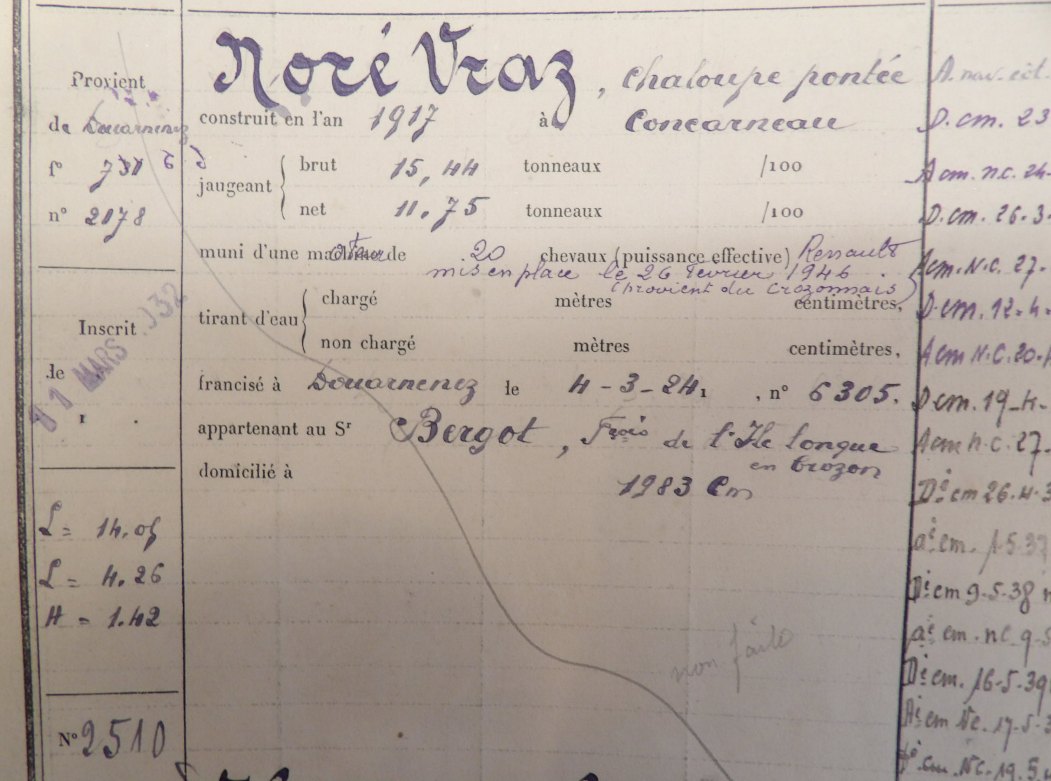 Noré Vraz, chaloupe pontée
construit en l'an 1917 à Concarneau
jaugeant brut 15,44 tonneaux /100
net 11.75 tonneaux /100
muni d'une de 20 chevaux (puissance effective) Renault
mis en place le 26 Fevrier 1946.
(provient du Crozonnais)
tirant d'eau chargé mètres centimètres,
non chargé mètres centimètres,
francisé à Douarnenez le 4-3-24, n° 6305.
appartenant au Sr Bergot, François de l'Ile longue
en Crozon
domicilié à
1983 Cm
Provient
de Douarnenez
f°
n° 2178
Inscrit
le
11 MARS 1932
1
L = 14.05
L = 4.26
H = 1.42
N° 2510
non faite
D. cm. 23
A cm. n.c. 24-
D. cm. 26-3-
A cm. N.C. 27-
D cm. 12-4-
A cm N.C. 20-
D cm. 19-4-
A cm n.c. 27-
D° cm 26-4-3
a° cm. 1-5-37
D° cm 9-5-38
a° cm. nc. 9-5
D° cm. 16-5-39
A° cm Nc. 17-5-3
D° cm. NC. 19-5